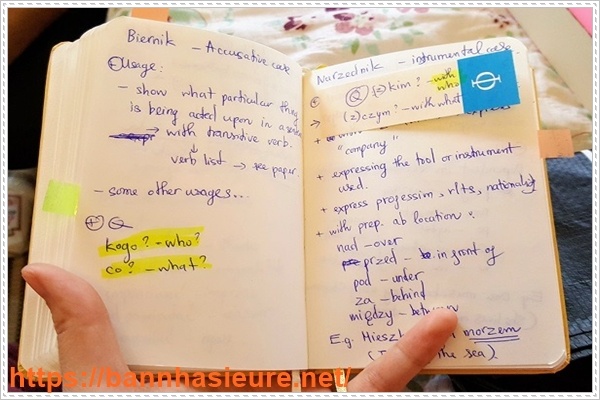 Biernik – Accusative case
Usage:
– show what particular thing
is being acted upon in a
→ with transitive verb.
↓
verb list → see paper
– some other usages...
kogo? – who?
co? – what?
Narzednik – instrumental case.
Q (z) kim? – with who
(z) czym? – with what
"company"
+ expressing the tool or instrument
used.
+ express profession, rlts, nationality
+ with prep. ab location:
nad – over
przed – in front of
pod – under
za – behind
między – between
E.g. morzem
the sea)
https://bannhasieure.net/